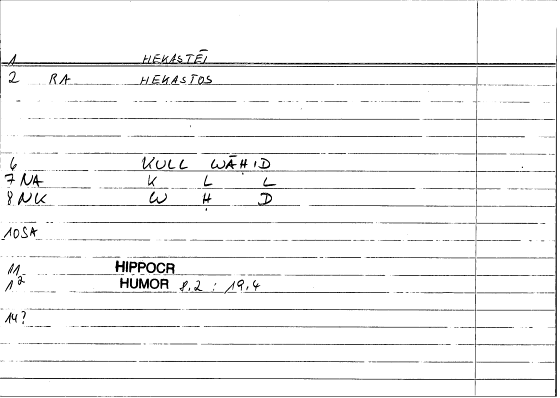 1 HEKASTĒI
2 RA HEKASTOS
6 KULL WĀḤID
7 NA K L L
8 NK W Ḥ D
10SA
11 HIPPOCR
12 HUMOR 8.2 : 19.4
14?